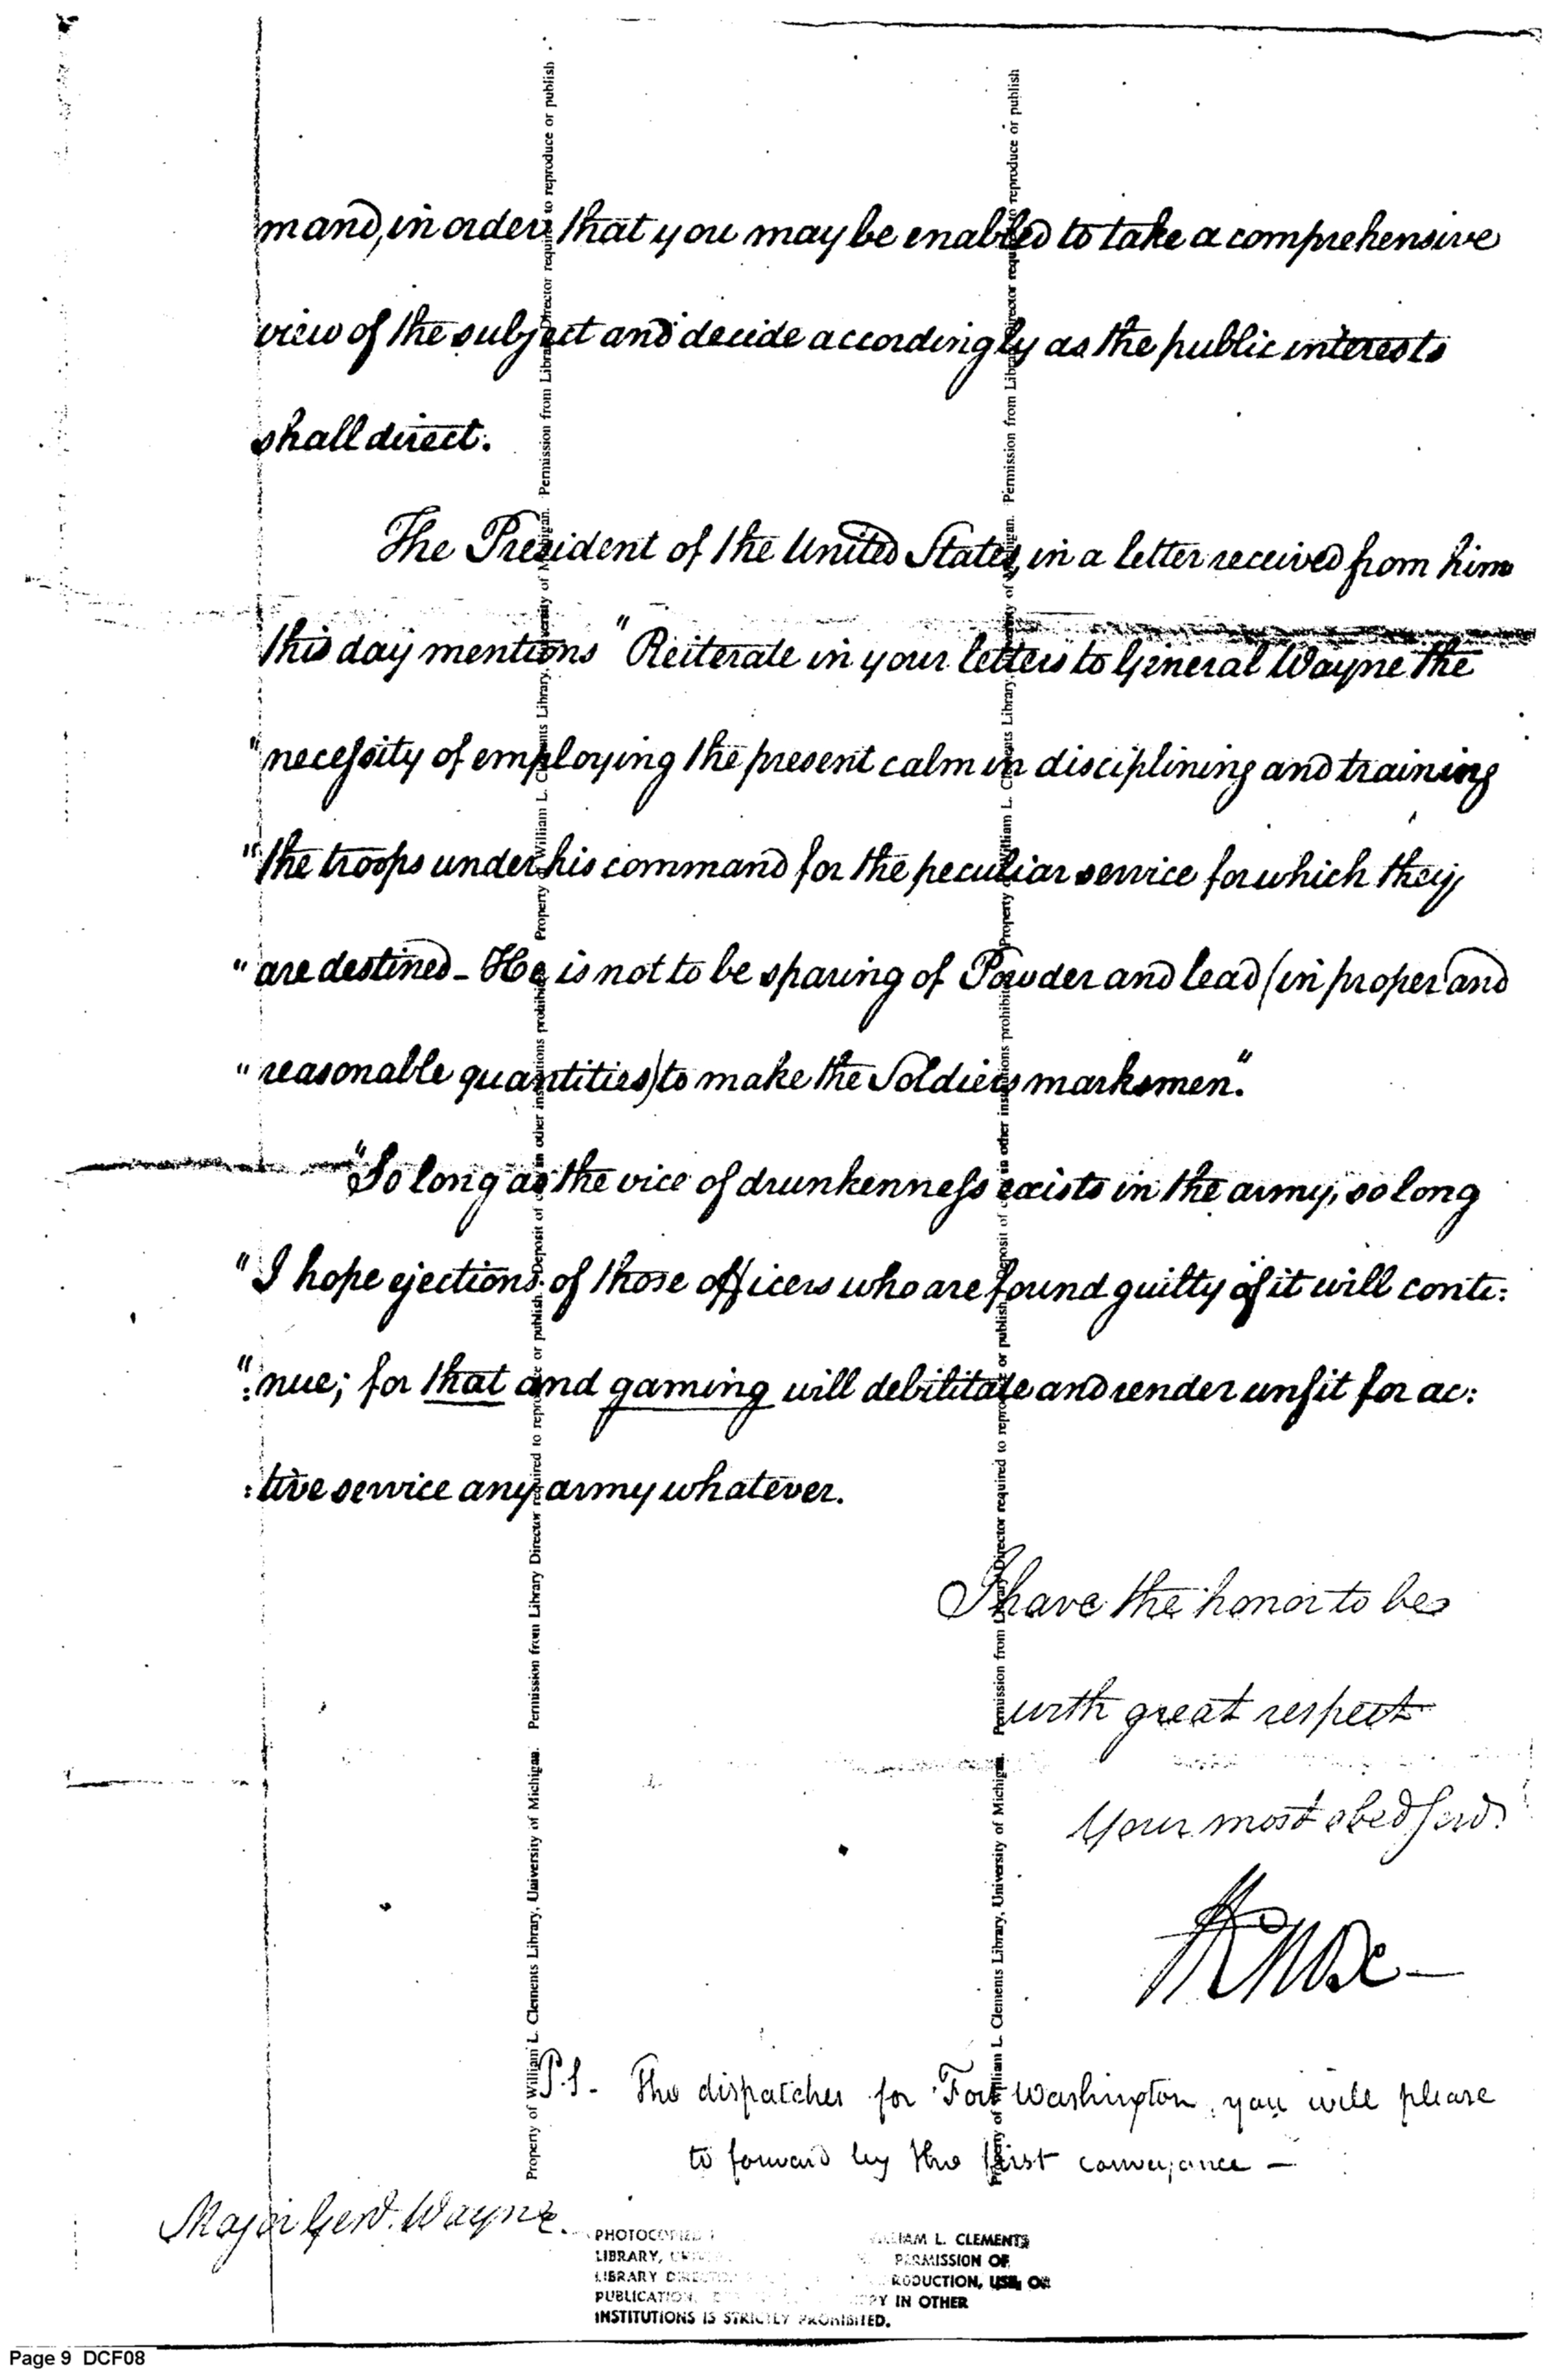 mand, in order that you may be enabled to take a comprehensive
view of the subject and decide accordingly as the public interests
shall direct.
The President of the United States, in a letter received from him
this day mentions "Reiterate in your letters to General Wayne the
"necessity of employing the present calm in disciplining and training
"the troops under his command for the peculiar service for which they
"are destined - He is not to be sparing of Powder and lead (in proper and
"reasonable quantities) to make the Soldiers marksmen."
"So long as the vice of drunkenness exists in the army, so long
"I hope ejections of those officers who are found guilty of it will conti:
":nue; for that and gaming will debilitate and render unfit for ac:
:tive service any army whatever.
I have the honor to be
with great respect
Your most obed Servt
HKnox—
P.S. - The dispatches for Fort Washington, you will please
to forward by the first conveyance —
Major Genl. Wayne.
Property of William L. Clements Library, University of Michigan. Permission from Library Director required to reproduce or publish. Deposit of in other institutions prohibited. Property of William L. Clements Library, University of Michigan. Permission from Library Director required to reproduce or publish
Property of William L. Clements Library, University of Michigan. Permission from Library Director required to reproduce or publish. Deposit of in other institutions prohibited. Property of William L. Clements Library, University of Michigan. Permission from Library Director required to reproduce or publish
PHOTOCOPIED WILLIAM L. CLEMENTS
LIBRARY, PERMISSION OF
LIBRARY DIRECTOR REPRODUCTION, USE, OR
PUBLICATION. COPY IN OTHER
INSTITUTIONS IS STRICTLY PROHIBITED.
Page 9 DCF08